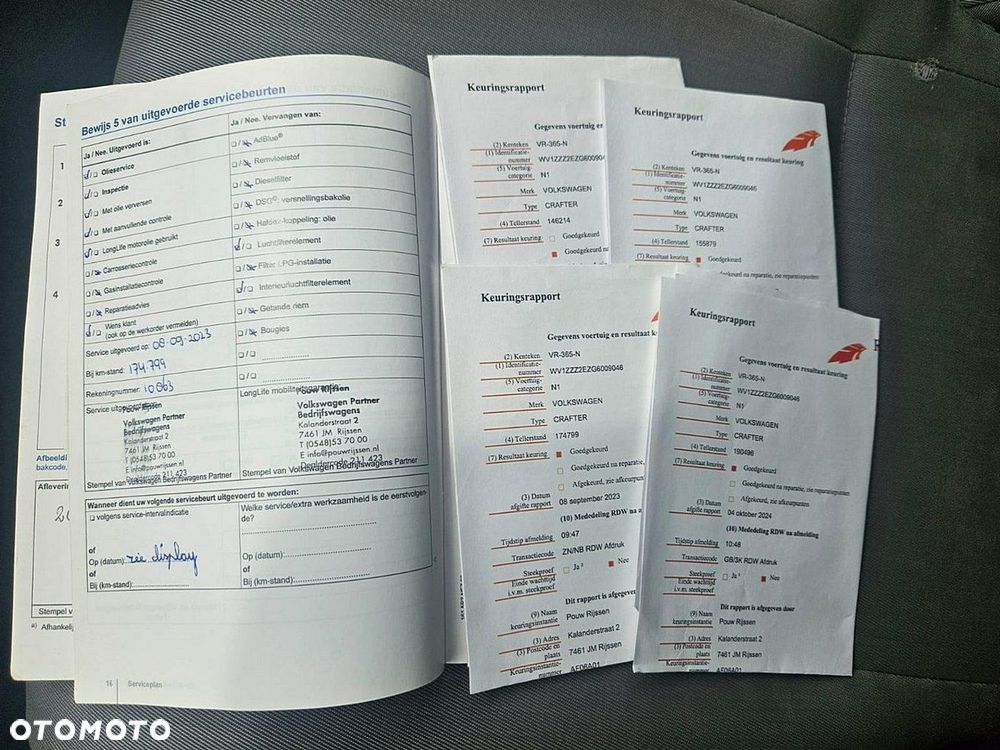 St
1
2
3
4
Afbeeldi
bakcode,
Aflever
Stempel v
a) Afhankelij
Bewijs 5 van uitgevoerde servicebeurten
Ja / Nee. Uitgevoerd is:
Olieservice
Inspectie
Met olie verversen
Met aanvullende controle
LongLife motorolie gebruikt
Carrosseriecontrole
Gasinstallatiecontrole
Reparatieadvies
Wens klant
(ook op de werkorder vermelden)
Service uitgevoerd op: 08-09-2023
Bij km-stand: 174.799
Rekeningnummer: 10063
Service uitgevoerd door
Pouw Rijssen
Volkswagen Partner
Bedrijfswagens
Kalanderstraat 2
7461 JM Rijssen
T (0548)53 70 00
E info@pouwrijssen.nl
Dealercode 211 423
Stempel van Volkswagen Bedrijfswagens Partner
Ja / Nee. Vervangen van:
AdBlue®
Remvloeistof
Dieselfilter
DSG®-versnellingsbakolie
Haldex-koppeling: olie
Luchtfilterelement
Filter LPG-installatie
Interieurluchtfilterelement
Getande riem
Bougies
LongLife mobiliteitsgarantie
Pouw Rijssen
Volkswagen Partner
Bedrijfswagens
Kalanderstraat 2
7461 JM Rijssen
T (0548)53 70 00
E info@pouwrijssen.nl
Dealercode 211 423
Stempel van Volkswagen Bedrijfswagens Partner
Wanneer dient uw volgende servicebeurt uitgevoerd te worden:
volgens service-intervalindicatie
of
Op (datum): zie display
of
Bij (km-stand):
Welke service/extra werkzaamheid is de eerstvolgen-
de?
Op (datum):
of
Bij (km-stand):
16 Serviceplan
Keuringsrapport
Gegevens voertuig en
(2) Kenteken VR-365-N
(1) Identificatie-
nummer WV1ZZZ2EZG6009046
(5) Voertuig-
categorie N1
Merk VOLKSWAGEN
Type CRAFTER
(4) Tellerstand 146214
(7) Resultaat keuring Goedgekeurd
Goedgekeurd na
Keuringsrapport
Gegevens voertuig en resultaat keuring
(2) Kenteken VR-365-N
(1) Identificatie-
nummer WV1ZZZ2EZG6009046
(5) Voertuig-
categorie N1
Merk VOLKSWAGEN
Type CRAFTER
(4) Tellerstand 155879
(7) Resultaat keuring Goedgekeurd
Goedgekeurd na reparatie, zie reparatiepunten
Keuringsrapport
Gegevens voertuig en resultaat k
(2) Kenteken VR-365-N
(1) Identificatie-
nummer WV1ZZZ2EZG6009046
(5) Voertuig-
categorie N1
Merk VOLKSWAGEN
Type CRAFTER
(4) Tellerstand 174799
(7) Resultaat keuring Goedgekeurd
Goedgekeurd na reparatie,
Afgekeurd, zie afkeurpun
(3) Datum
afgifte rapport 08 september 2023
(10) Mededeling RDW na
Tijdstip afmelding 09:47
Transactiecode ZN/NB RDW Afdruk
Steekproef Ja ³ Nee
Einde wachttijd
i.v.m. steekproef
Dit rapport is afgegeven
(9) Naam
keuringsinstantie Pouw Rijssen
(3) Adres Kalanderstraat 2
(3) Postcode en
plaats 7461 JM Rijssen
Keuringsinstantie-
nummer AF06A01
Keuringsrapport
Gegevens voertuig en resultaat keuring
(2) Kenteken VR-365-N
(1) Identificatie-
nummer WV1ZZZ2EZG6009046
(5) Voertuig-
categorie N1
Merk VOLKSWAGEN
Type CRAFTER
(4) Tellerstand 190496
(7) Resultaat keuring Goedgekeurd
Goedgekeurd na reparatie, zie reparatiepunten
Afgekeurd, zie afkeurpunten
(3) Datum
afgifte rapport 04 oktober 2024
(10) Mededeling RDW na afmelding
Tijdstip afmelding 10:48
Transactiecode GB/3K RDW Afdruk
Steekproef Ja ³ Nee
Einde wachttijd
i.v.m. steekproef
Dit rapport is afgegeven door
(9) Naam
keuringsinstantie Pouw Rijssen
(3) Adres Kalanderstraat 2
(3) Postcode en
plaats 7461 JM Rijssen
Keuringsinstantie-
nummer AF06A01
OTOMOTO